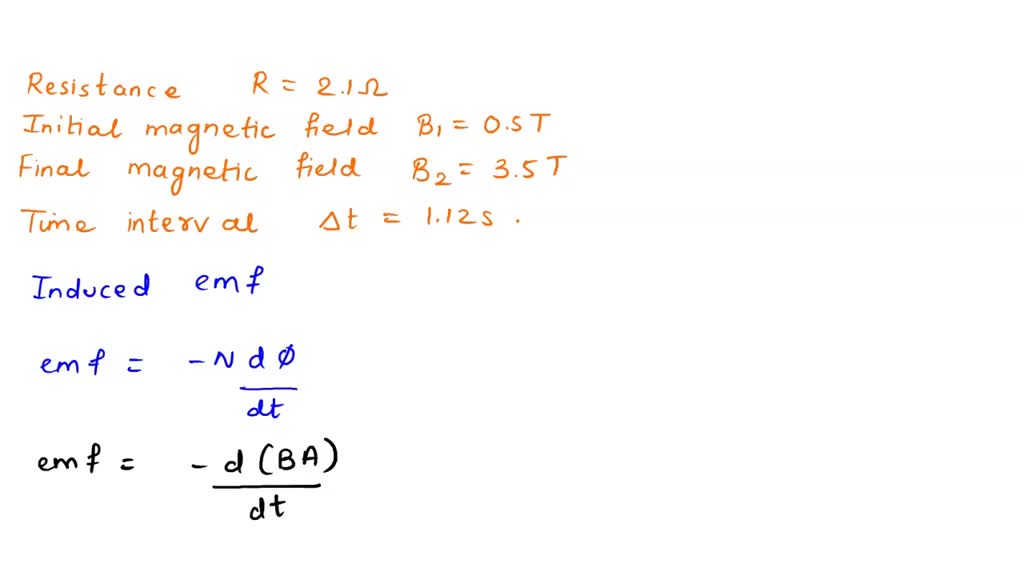 Resistance R = 2.1Ω
Initial magnetic field B₁ = 0.5T
Final magnetic field B₂ = 3.5T
Time interval Δt = 1.12s.
Induced emf
emf = -N dϕ
dt
emf = - d(BA)
dt